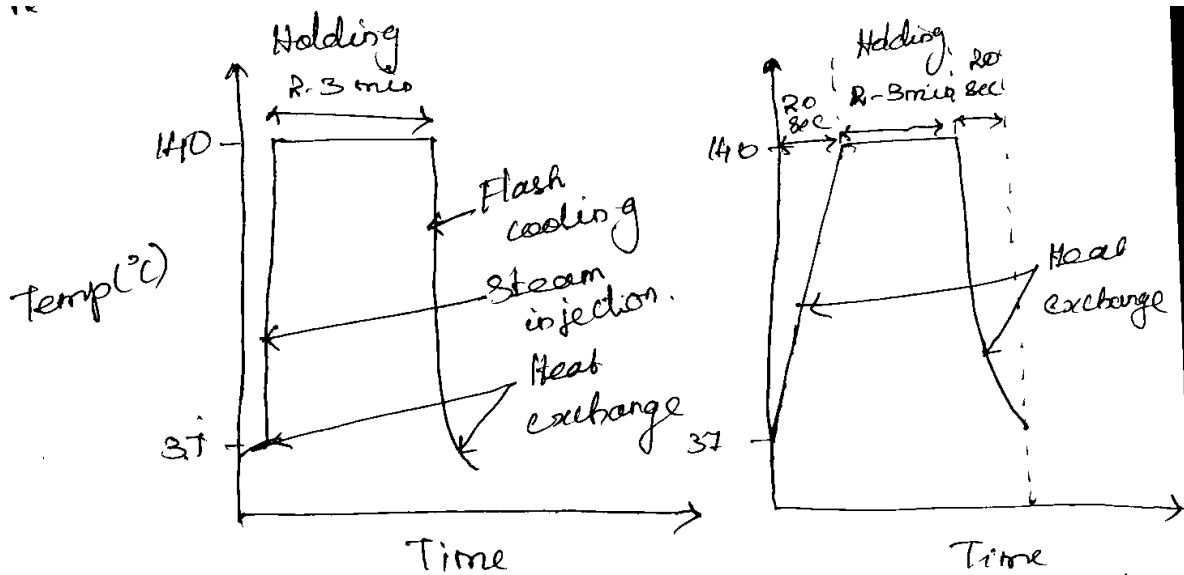 Holding
2-3 min
140
Flash
cooling
Temp(°C)
Steam
injection.
Heat
exchange
37
Time
Holding
20
sec
2-3min
20
sec
140
Heat
exchange
37
Time